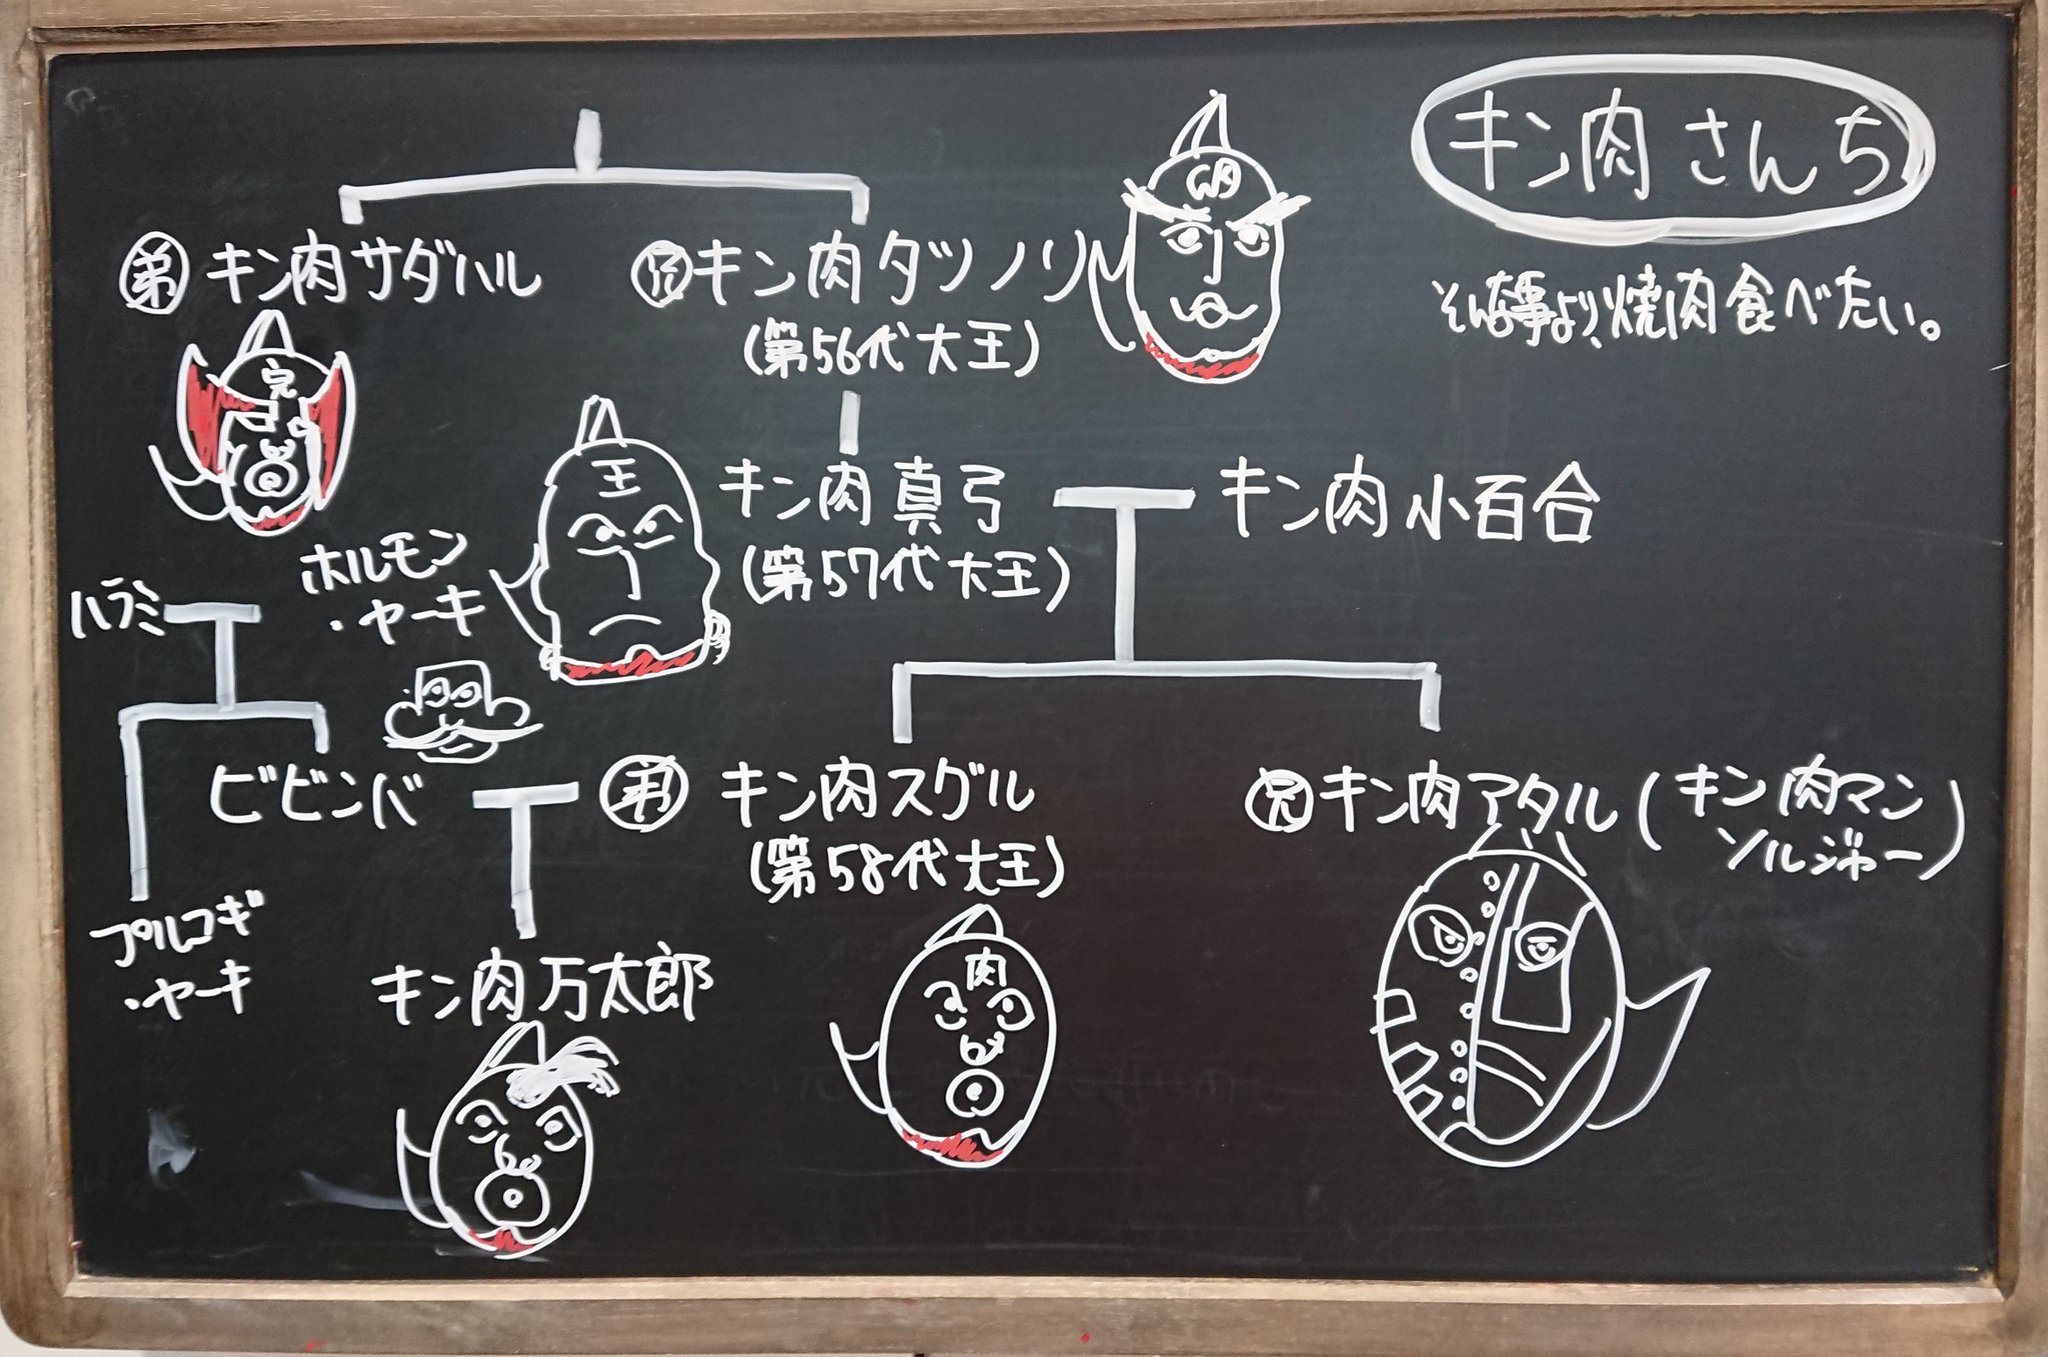 キン肉さんち
そんな事より、焼肉食べたい。
弟 キン肉サダハル
兄 キン肉タツノリ
(第56代大王)
肉
完
王
キン肉真弓
(第57代大王)
キン肉小百合
ハラミ
ホルモン
・ヤーキ
ビビンバ
弟 キン肉スグル
(第58代大王)
兄 キン肉アタル(キン肉マン
ソルジャー)
プルコギ
・ヤーキ
キン肉万太郎
肉